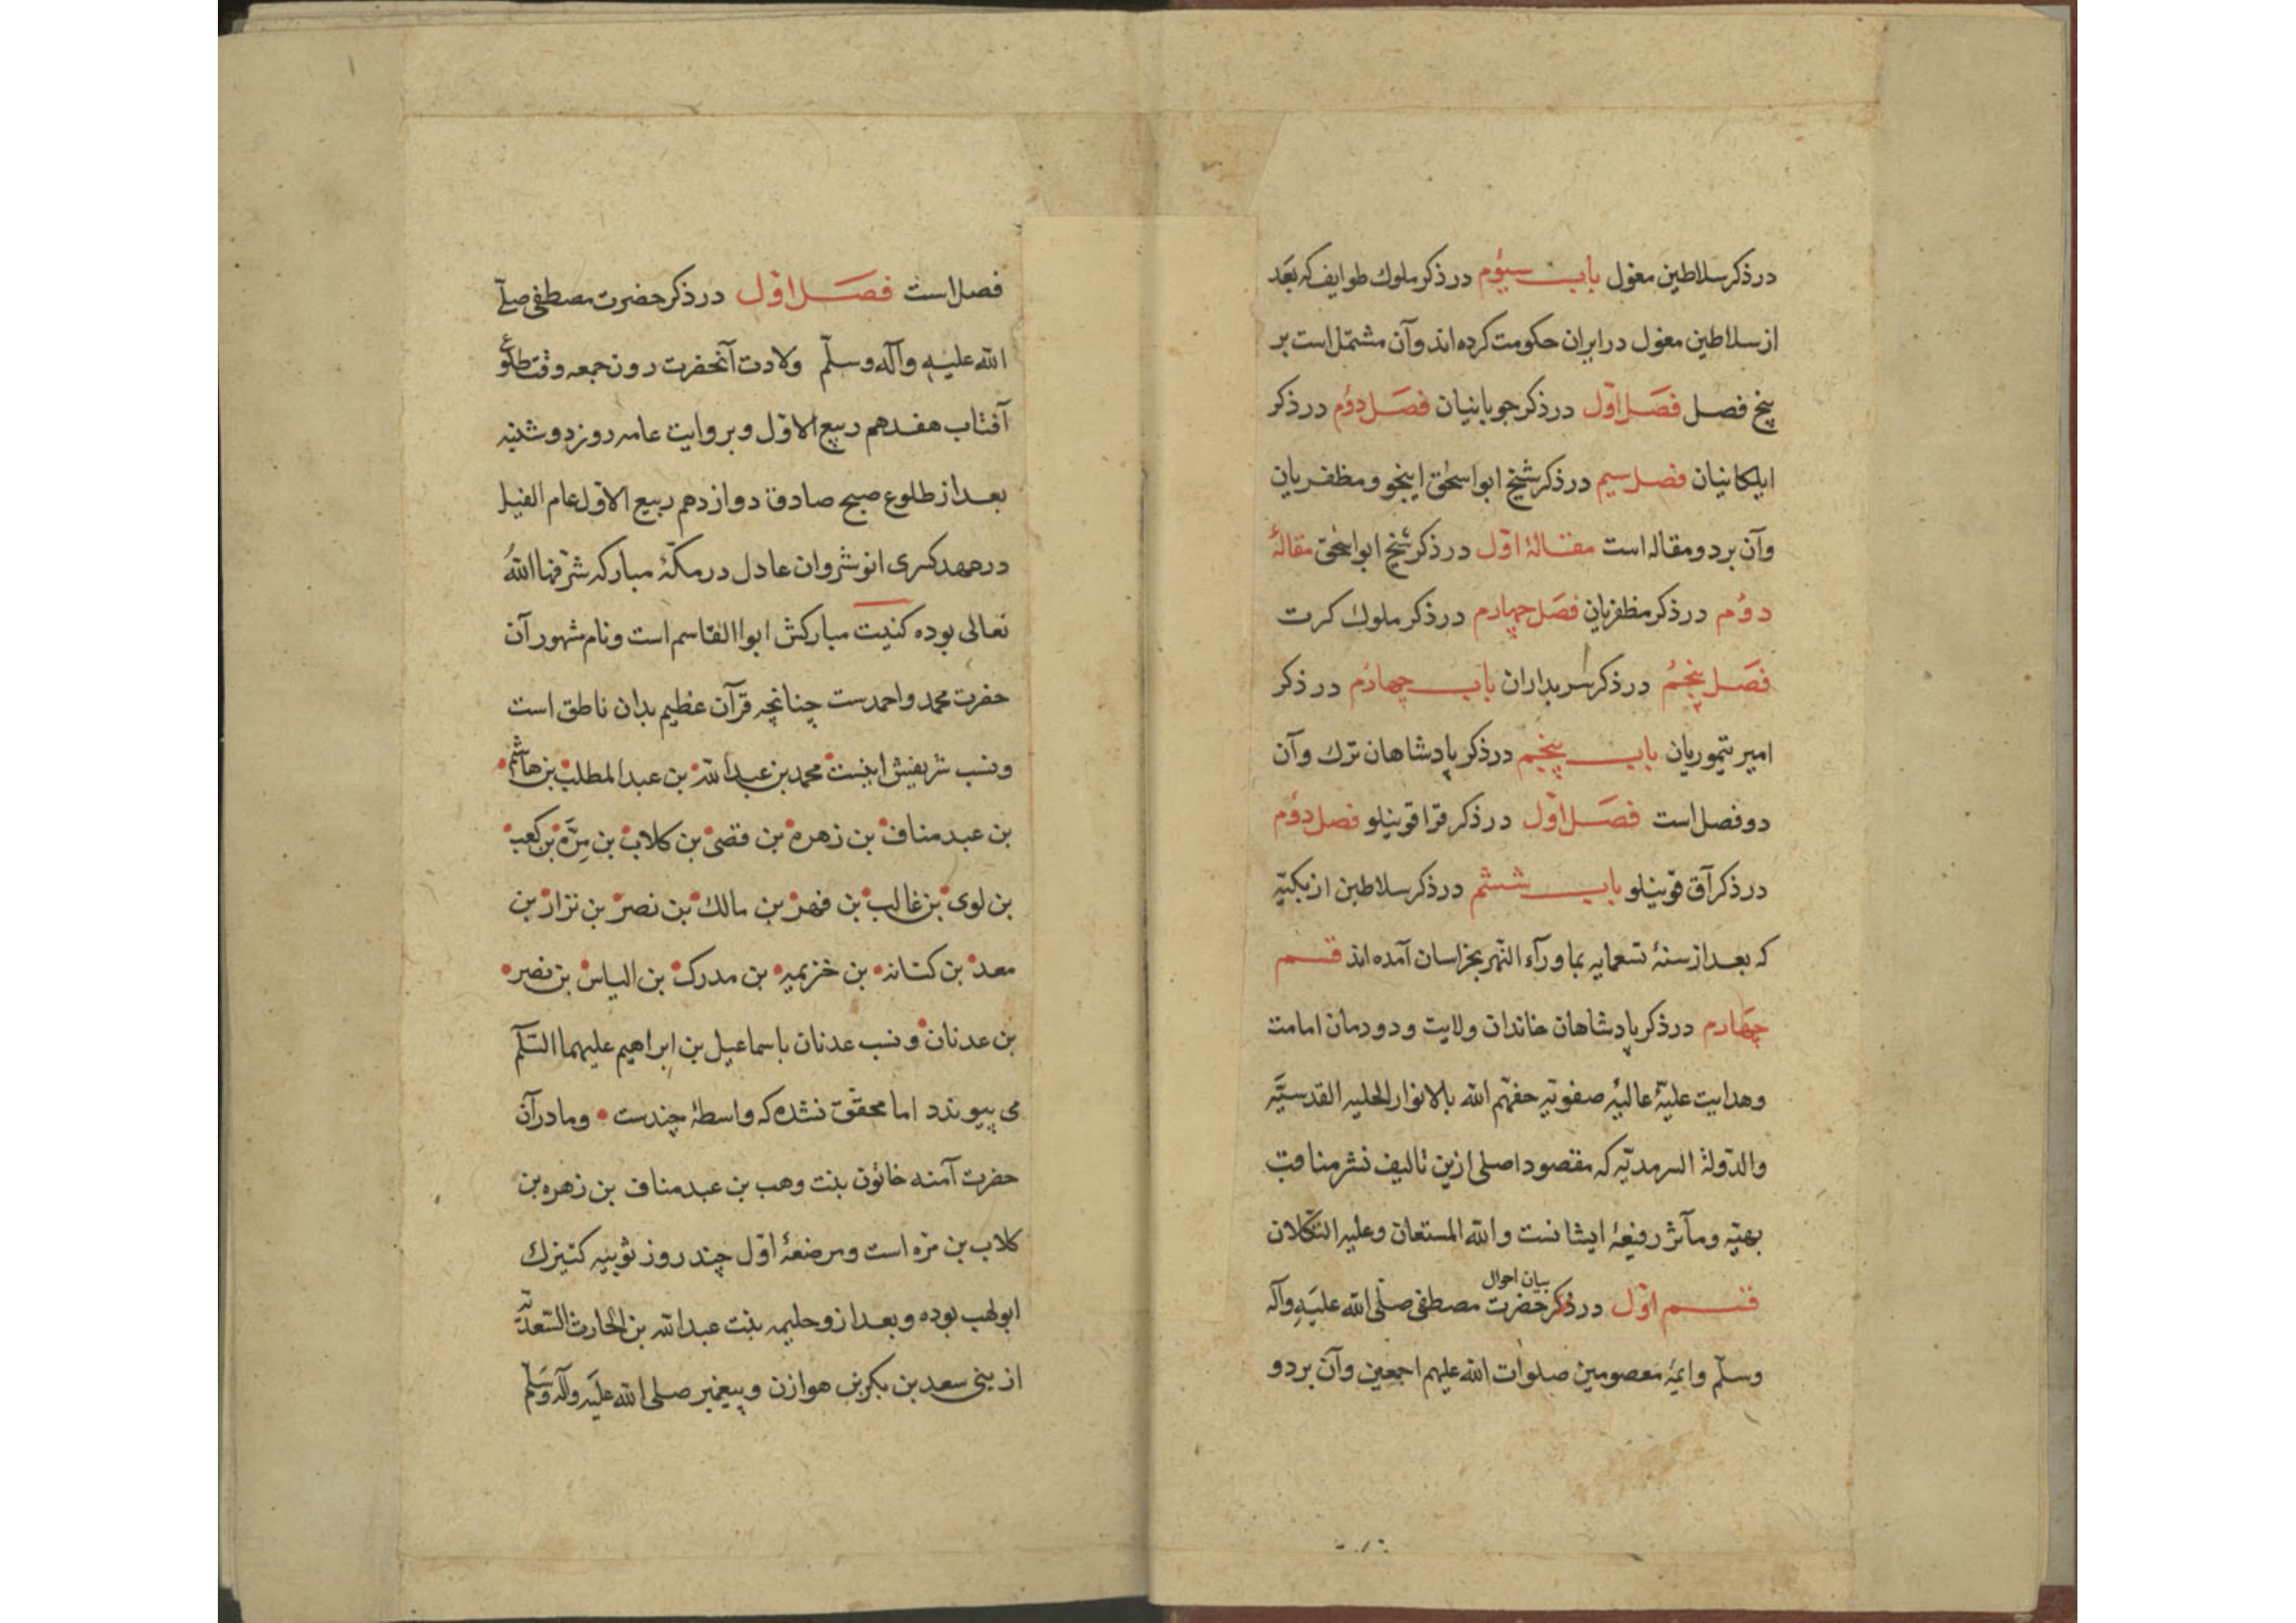 در ذکر سلاطین مغول باب سیوم در ذکر ملوک طوایف که بعد
از سلاطین مغول در ایران حکومت کرده اند و آن مشتمل است بر
پنج فصل فصل اول در ذکر جوبانیان فصل دوم در ذکر
ایلکانیان فصل سیم در ذکر شیخ ابواسحق اینجو و مظفریان
و آن بر دو مقاله است مقالۀ اول در ذکر شیخ ابواسحق مقالۀ
دوم در ذکر مظفریان فصل چهارم در ذکر ملوک کرت
فصل پنجم در ذکر سربداران باب چهارم در ذکر
امیر تیموریان باب پنجم در ذکر پادشاهان ترک و آن
دو فصل است فصل اول در ذکر قراقوینلو فصل دوم
در ذکر آق قوینلو باب ششم در ذکر سلاطین ازبکیّه
که بعد از سنۀ تسعمایه بماورآء النهر بخراسان آمده اند قسم
چهارم در ذکر پادشاهان خاندان ولایت و دودمان امامت
و هدایت علیّۀ عالیۀ صفویّه حفّهم الله بالانوار الجلیه القدسیّه
والدّولة السرمدیّه که مقصود اصلی ازین تالیف نشر مناقب
بهیّه و مآثر رفیعۀ ایشانست والله المستعان و علیه التکلان
بیان احوال
قسم اول در ذکر حضرت مصطفی صلّی الله علیه وآله
وسلّم وایمّۀ معصومین صلوات الله علیهم اجمعین و آن بر دو
فصل است فصل اول در ذکر حضرت مصطفی صلّی
الله علیه وآله وسلّم ولادت آنحضرت روز جمعه وقت طلوع
آفتاب هفدهم ربیع الاول و بروایت عامه روز دوشنبه
بعد از طلوع صبح صادق دوازدهم ربیع الاول عام الفیل
در عهد کسری انوشروان عادل در مکّۀ مبارکه شرّفها اللهُ
تعالی بوده کنیت مبارکش ابوا القاسم است و نام مشهور آن
حضرت محمد و احمدست چنانچه قرآن عظیم بدان ناطق است
و نسب شریفش اینست محمد بن عبدالله بن عبدالمطلب بن هاشم
بن عبدمناف بن زهره بن قصی بن کلاب بن مرّة بن کعب
بن لوی بن غالب بن فهر بن مالک بن نصر بن نزار بن
معد بن کنانه بن خزیمه بن مدرک بن الیاس بن نصر
بن عدنان و نسب عدنان باسماعیل بن ابراهیم علیهما السّلم
می پیوندد اما محقّق نشده که واسطۀ چندست و مادر آن
حضرت آمنه خاتون بنت وهب بن عبدمناف بن زهره بن
کلاب بن مره است و مرضعۀ اول چند روز ثویبه کنیزک
ابولهب بوده و بعد ازو حلیمه بنت عبدالله بن الحارث السّعدیّه
از بنی سعد بن بکر بن هوازن و پیغمبر صلی الله علیه وآله وسلّم